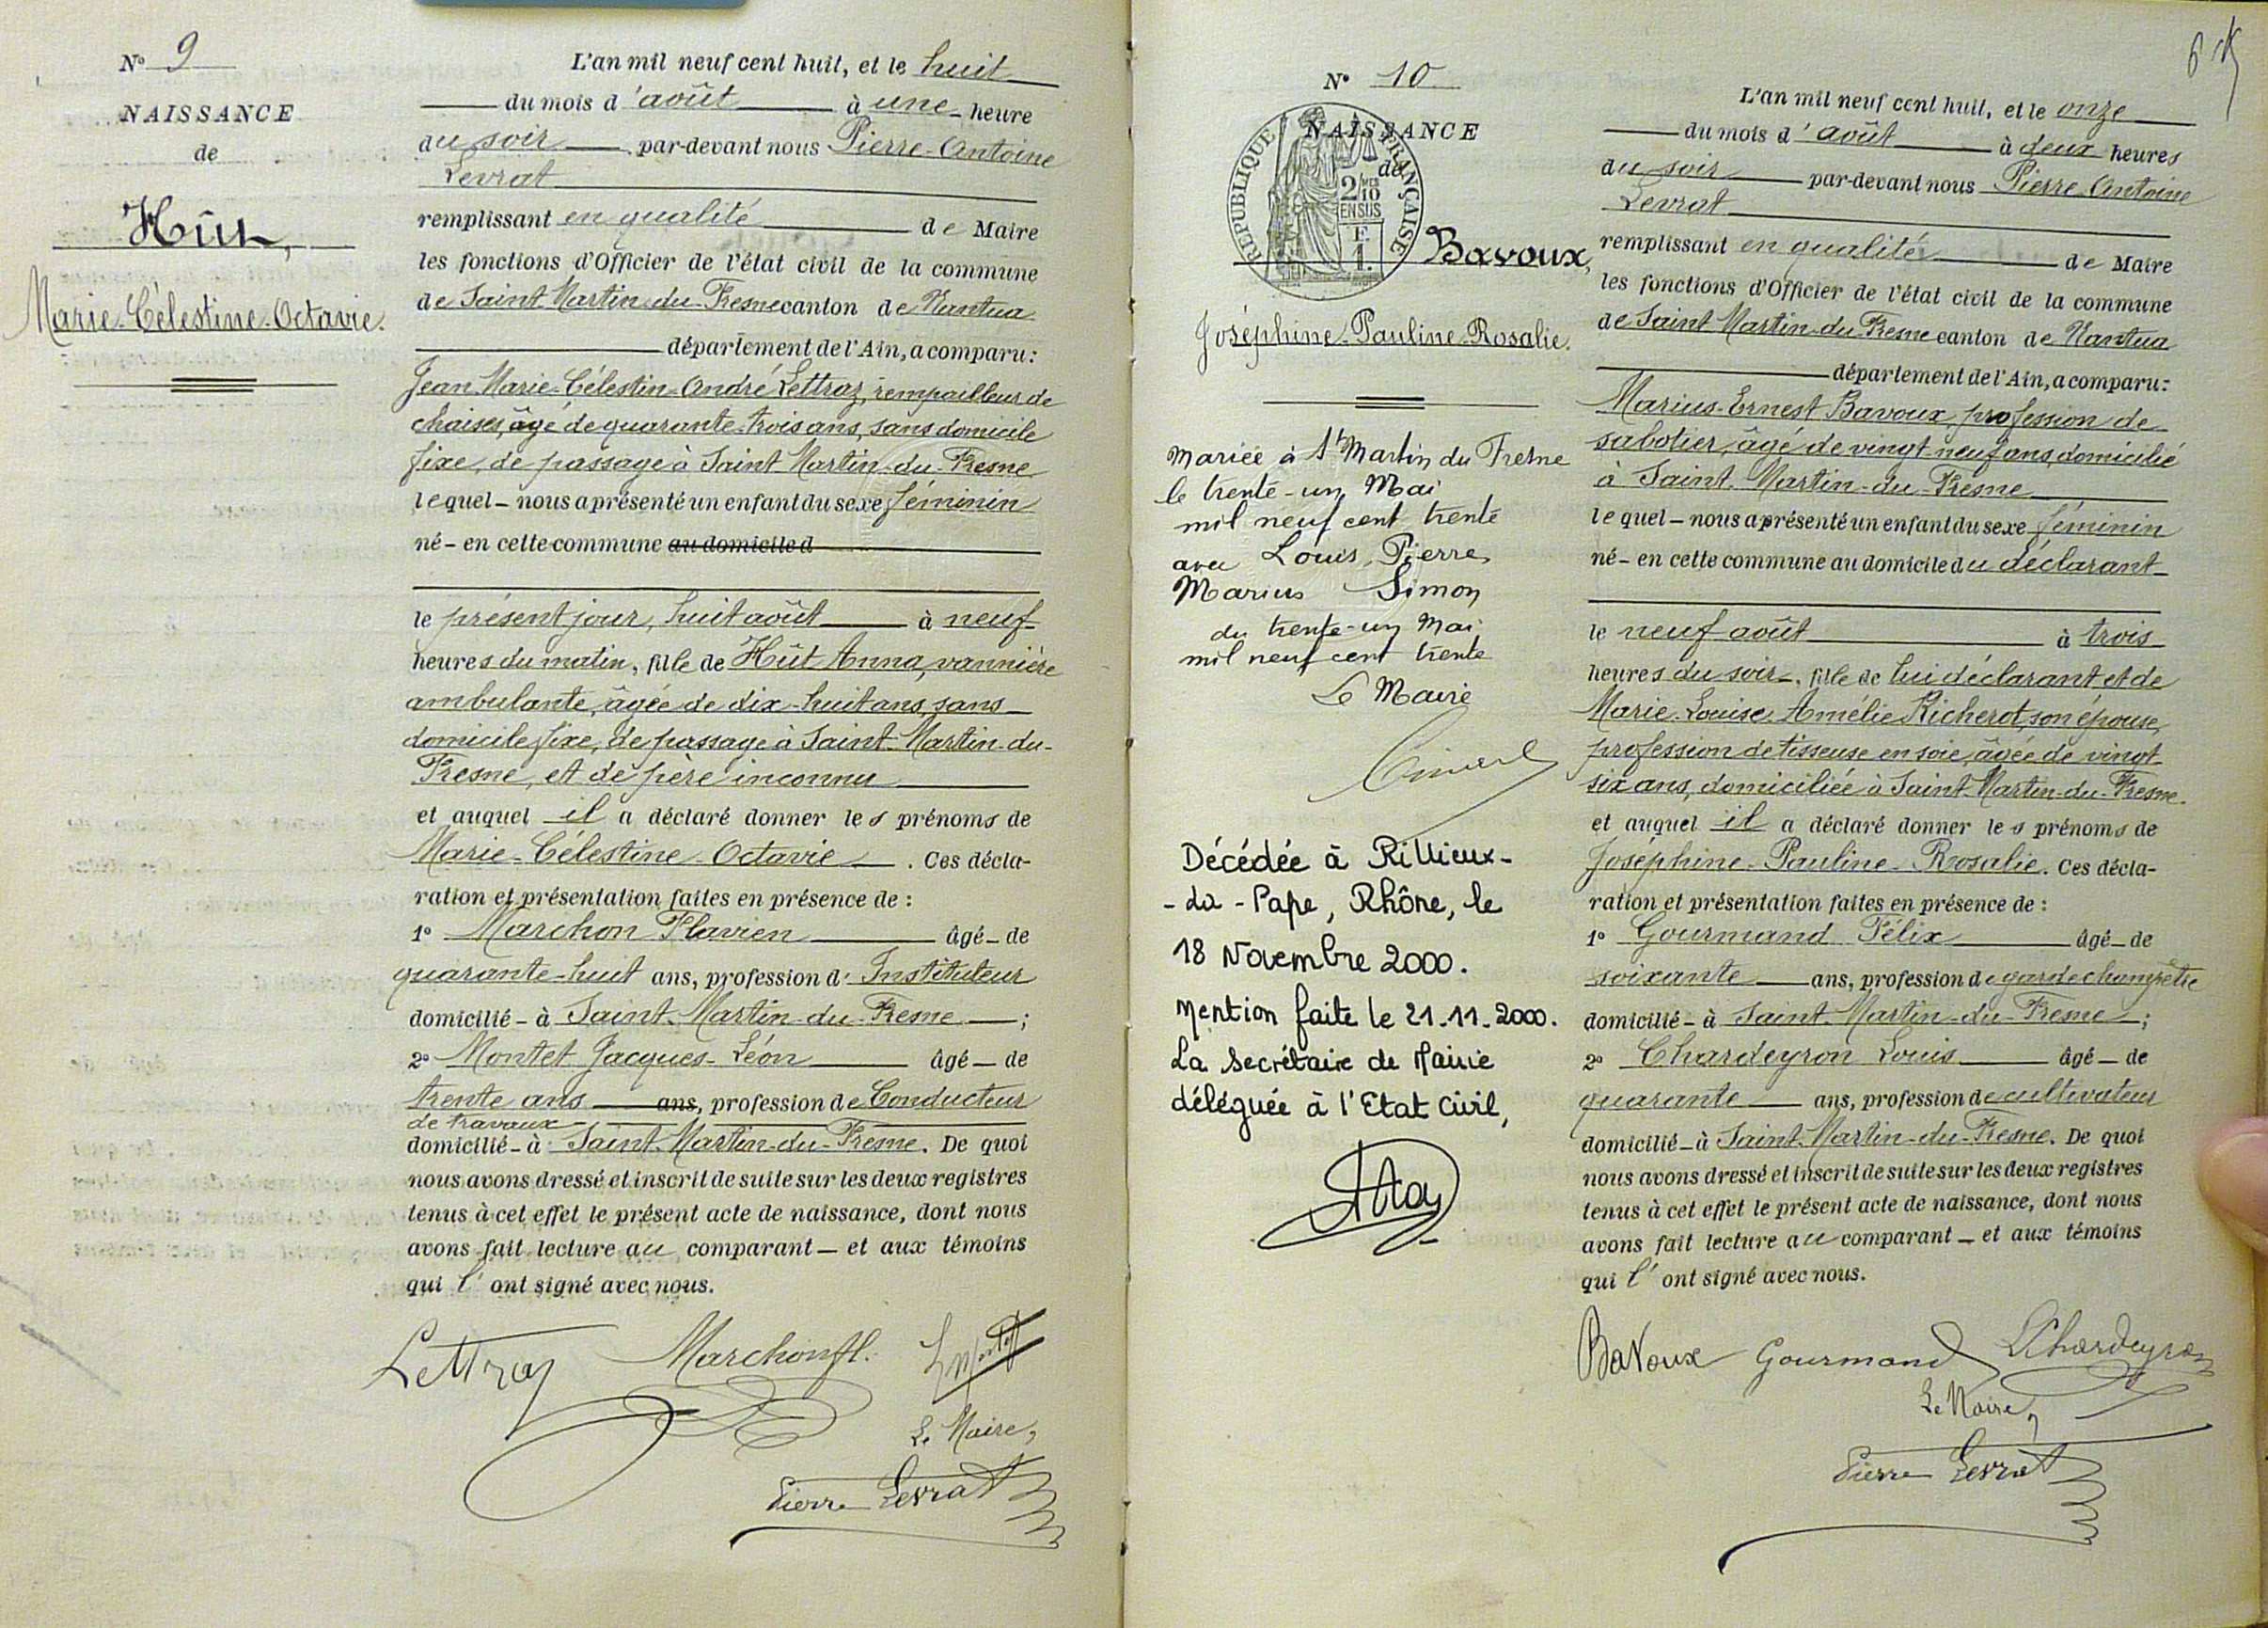 N° 9
NAISSANCE
de
Hût,
Marie-Célestine-Octavie.
L'an mil neuf cent huit, et le huit
du mois d'août à une heure
du soir par-devant nous Pierre-Antoine
Levrat
remplissant en qualité de Maire
les fonctions d'Officier de l'état civil de la commune
de Saint-Martin-du-Fresne canton de Nantua
département de l'Ain, a comparu :
Jean-Marie-Célestin-André Lettraz, rempailleur de
chaises, âgé de quarante-trois ans, sans domicile
fixe, de passage à Saint-Martin-du-Fresne
lequel nous a présenté un enfant du sexe féminin
né en cette commune au domicile d
le présent jour, huit août à neuf
heures du matin, fille de Hût Anna, vannière
ambulante, âgée de dix-huit ans, sans
domicile fixe, de passage à Saint-Martin-du-
Fresne, et de père inconnu
et auquel il a déclaré donner les prénoms de
Marie-Célestine-Octavie. Ces décla-
ration et présentation faites en présence de :
1° Marchon Flavien âgé de
quarante-huit ans, profession d'Instituteur
domicilié à Saint-Martin-du-Fresne ;
2° Montet Jacques-Léon âgé de
trente ans ans, profession de Conducteur
de travaux
domicilié à Saint-Martin-du-Fresne. De quoi
nous avons dressé et inscrit de suite sur les deux registres
tenus à cet effet le présent acte de naissance, dont nous
avons fait lecture au comparant et aux témoins
qui l'ont signé avec nous.
Lettraz Marchon fl.
Le Maire,
Pierre Levrat
N° 10
NAISSANCE
de
RÉPUBLIQUE FRANÇAISE
2/10
EN SUS
F.
1.
Bavoux,
Joséphine-Pauline-Rosalie.
Mariée à St Martin du Fresne
le trente-un Mai
mil neuf cent trente
avec Louis Pierre
Marius Simon
du trente-un Mai
mil neuf cent trente
Le Maire
Décédée à Rillieux-
-La-Pape, Rhône, le
18 Novembre 2000.
Mention faite le 21-11-2000.
La Secrétaire de Mairie
déléguée à l'Etat Civil,
L'an mil neuf cent huit, et le onze
du mois d'août à deux heures
du soir par-devant nous Pierre-Antoine
Levrat
remplissant en qualité de Maire
les fonctions d'Officier de l'état civil de la commune
de Saint-Martin-du-Fresne canton de Nantua
département de l'Ain, a comparu :
Marius-Ernest Bavoux, profession de
sabotier, âgé de vingt neuf ans, domicilié
à Saint-Martin-du-Fresne
lequel nous a présenté un enfant du sexe féminin
né en cette commune au domicile du déclarant
le neuf août à trois
heures du soir, fille de lui déclarant et de
Marie-Louise-Amélie Richerot, son épouse,
profession de tisseuse en soie, âgée de vingt
six ans, domiciliée à Saint-Martin-du-Fresne.
et auquel il a déclaré donner les prénoms de
Joséphine-Pauline-Rosalie. Ces décla-
ration et présentation faites en présence de :
1° Gourmand Félix âgé de
soixante ans, profession de garde champêtre
domicilié à Saint-Martin-du-Fresne ;
2° Chardeyron Louis âgé de
quarante ans, profession de cultivateur
domicilié à Saint-Martin-du-Fresne. De quoi
nous avons dressé et inscrit de suite sur les deux registres
tenus à cet effet le présent acte de naissance, dont nous
avons fait lecture au comparant et aux témoins
qui l'ont signé avec nous.
Bavoux Gourmand LChardeyron
Le Maire,
Pierre Levrat